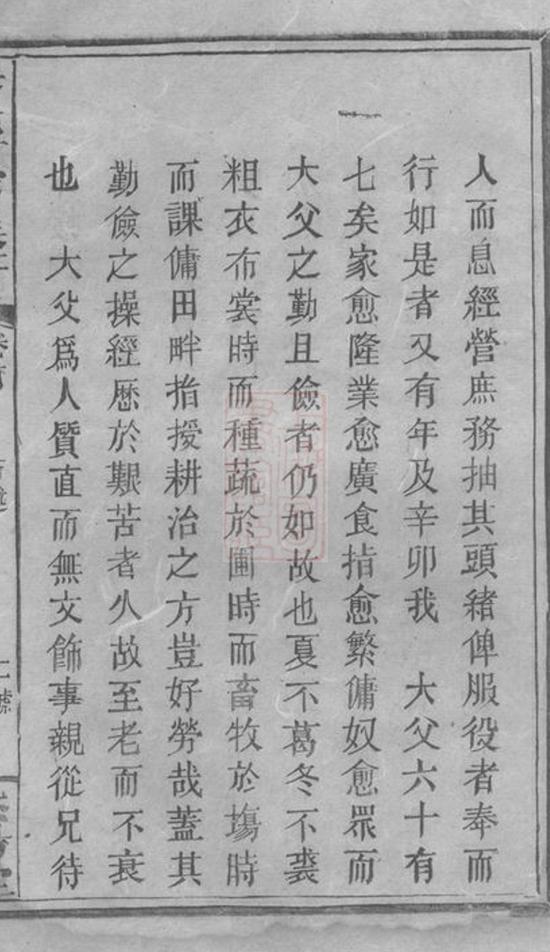 人而息經營庶務抽其頭緒俾服役者奉而
行如是者又有年及辛卯我　大父六十有
七矣家愈隆業愈廣食指愈繁傭奴愈眾而
大父之勤且儉者仍如故也夏不葛冬不裘
粗衣布裳時而種蔬於圃時而畜牧於塲時
而課傭田畔指授耕治之方豈好勞哉蓋其
勤儉之操經歷於艱苦者久故至老而不衰
也　大父爲人質直而無文飾事親從兄待